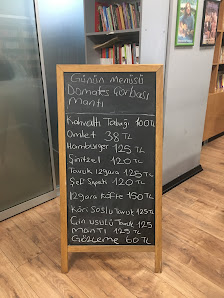 Günün Menüsü
Domates Çorbası
Mantı
Kahvaltı Tabağı 100TL
Omlet 38 TL
Hamburger 125 TL
Şinitzel 120TL
Tavuk ızgara 125TL
Şef Sepeti 120 TL
Izgara Köfte 150TL
Köri Soslu Tavuk 125TL
Çin usulü Tavuk 125
MANTI 125TL
Gözleme 60 TL